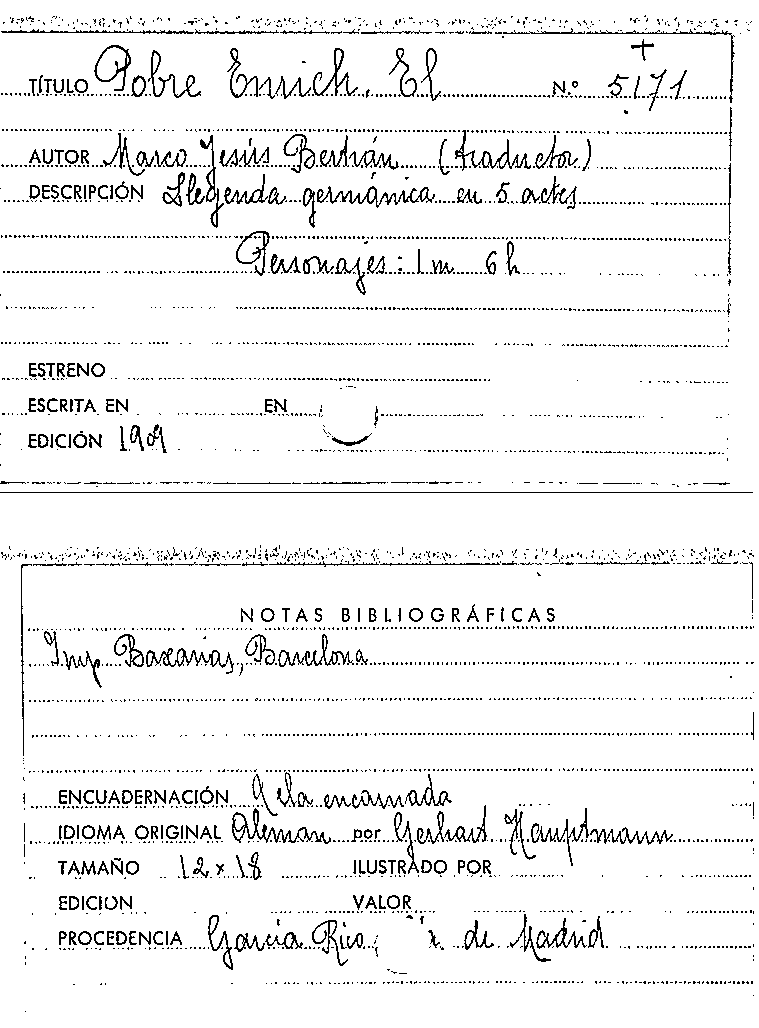 +
TÍTULO Pobre Enrich, El N.º 5171
AUTOR Marco Jesús Bertrán (traductor)
DESCRIPCIÓN Llegenda germánica en 5 actes
Personajes: 1 m 6 h
ESTRENO
ESCRITA EN EN
EDICIÓN 1909
NOTAS BIBLIOGRÁFICAS
Imp Baxarias, Barcelona
ENCUADERNACIÓN tela encarnada
IDIOMA ORIGINAL Aleman por Gerhart Hauptmann
TAMAÑO 12 x 18 ILUSTRADO POR
EDICION VALOR
PROCEDENCIA García Rico, de Madrid